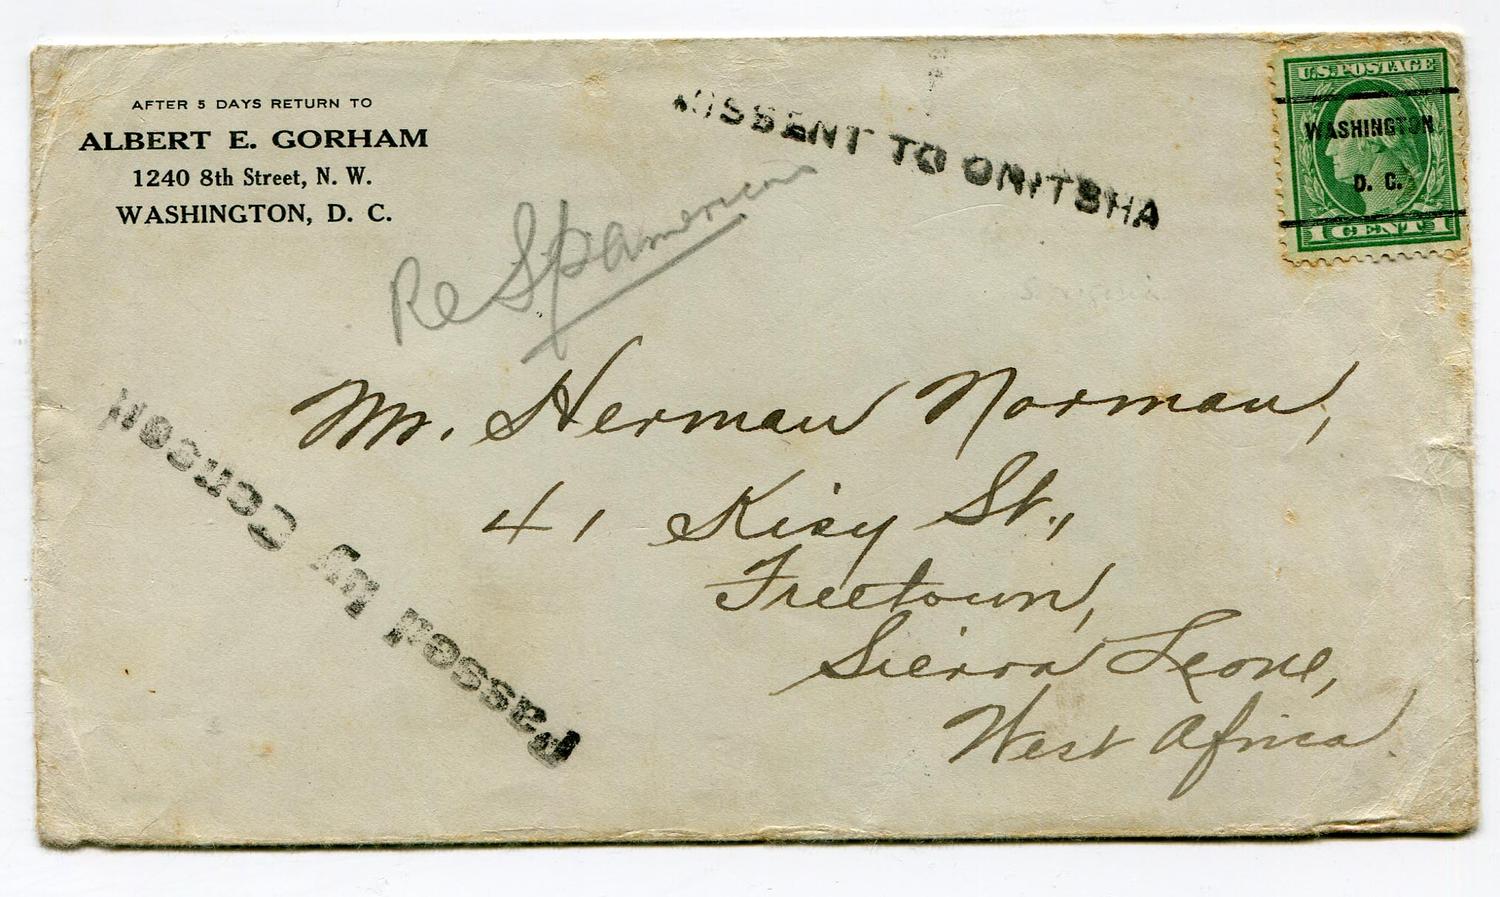 AFTER 5 DAYS RETURN TO
ALBERT E. GORHAM
1240 8th Street, N. W.
WASHINGTON, D. C.
MISSENT TO ONITSHA
U.S. POSTAGE
WASHINGTON
D. C.
1 CENT 1
Re Spamericana
Mr. Herman Norman,
41 Kisy St.,
Freetown,
Sierra Leone,
West Africa.
Passed by Censor